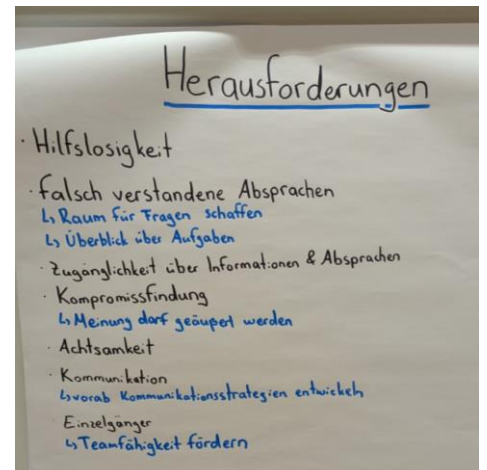 Herausforderungen
· Hilfslosigkeit
· falsch verstandene Absprachen
↳ Raum für Fragen schaffen
↳ Überblick über Aufgaben
· Zugänglichkeit über Informationen & Absprachen
· Kompromissfindung
↳ Meinung darf geäußert werden
· Achtsamkeit
· Kommunikation
↳ vorab Kommunikationsstrategien entwickeln
Einzelgänger
↳ Teamfähigkeit fördern